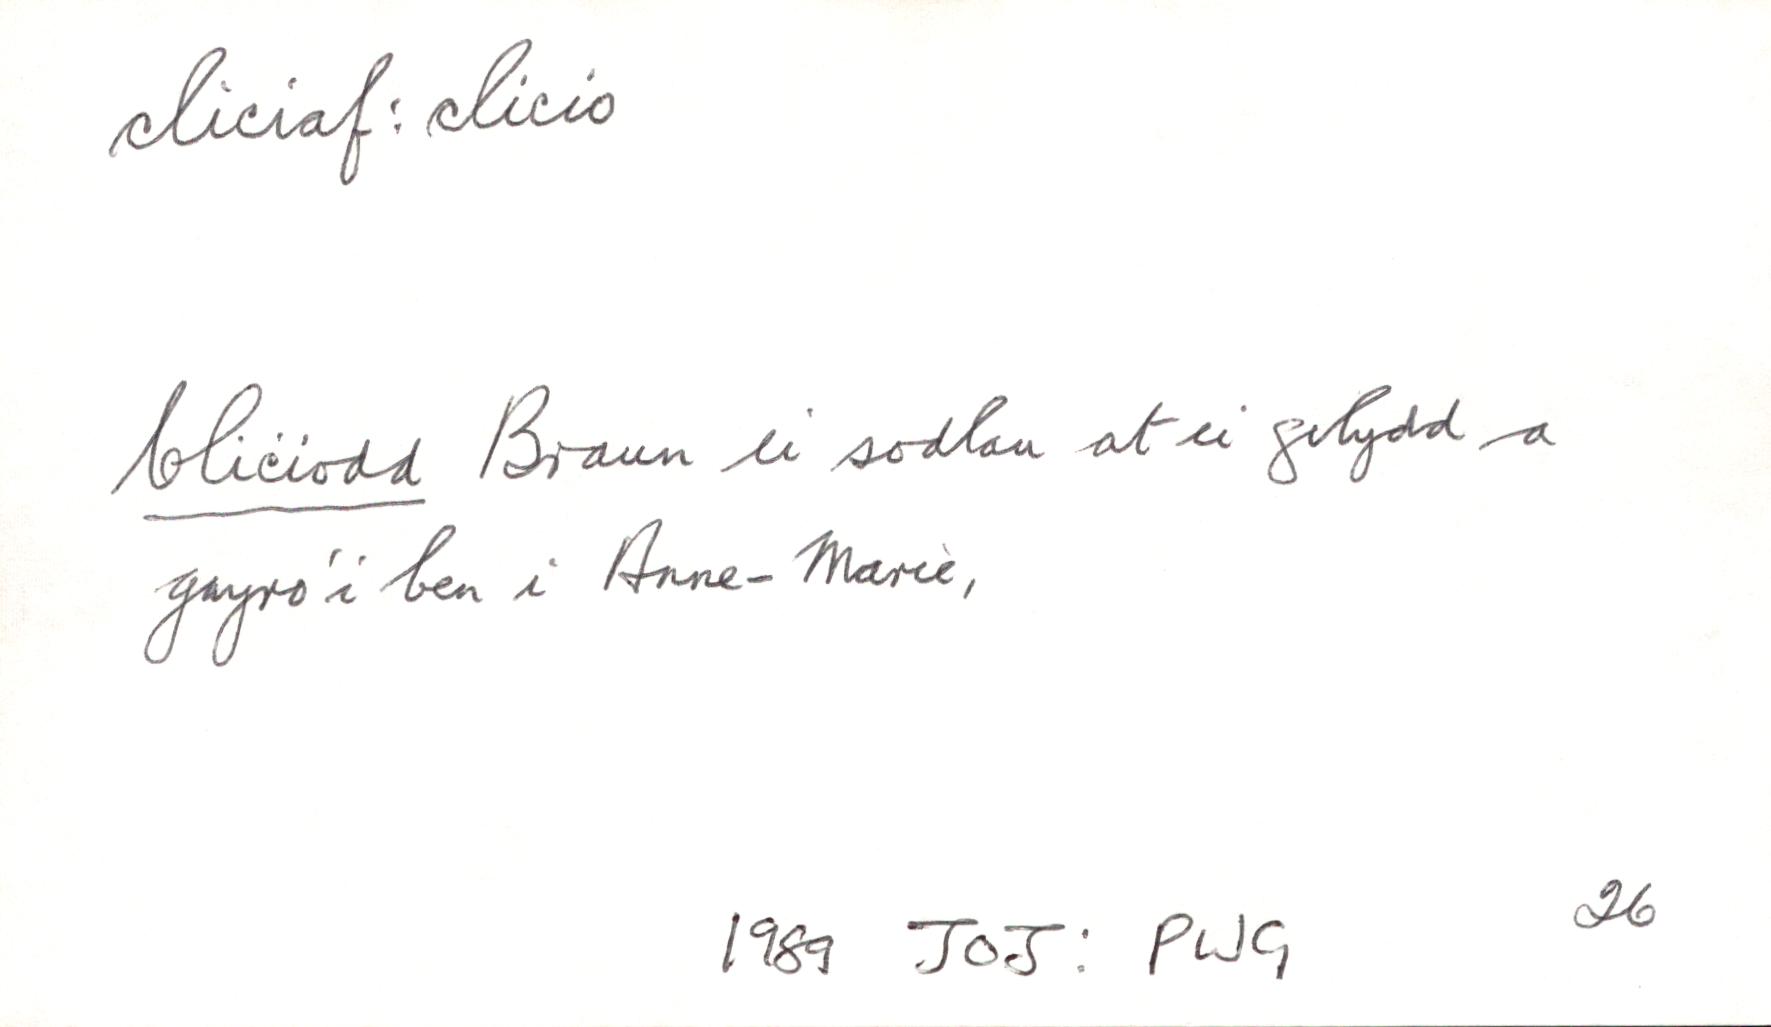 cliciaf: clicio
Cliciodd Braun ei sodlau at ei gilydd a
gwyro'i ben i Anne-Marie,
26
1989 JOJ: PWG